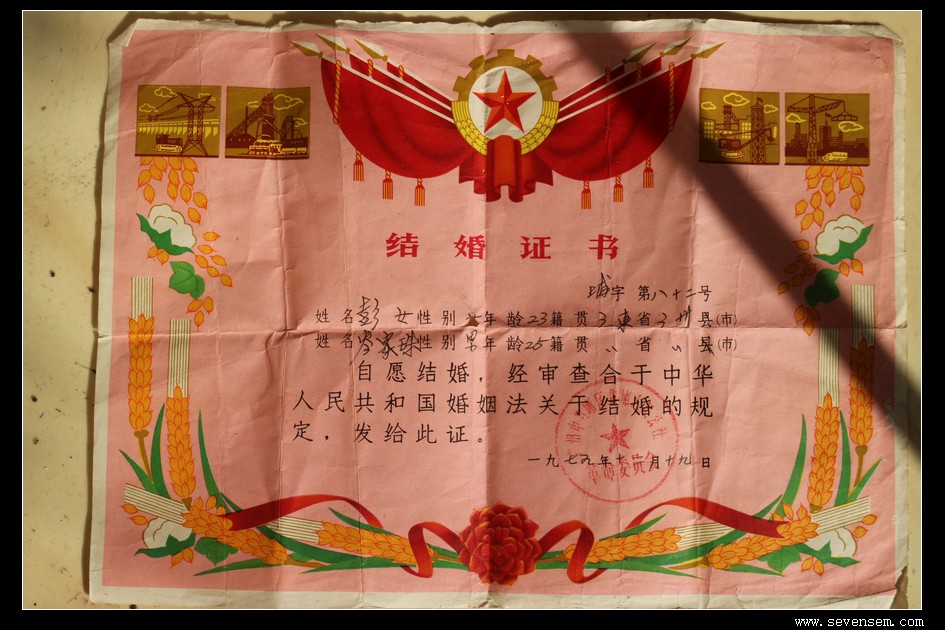 结婚证书
埔字 第八十二号
姓名彭 女性别 女年龄23籍贯广东省广州县(市)
姓名 家珠性别男年龄25籍贯〃省〃县(市)
自愿结婚，经审查合于中华
人民共和国婚姻法关于结婚的规
定，发给此证。
一九七九年十 月十九日
革命委员会
www.sevensem.com